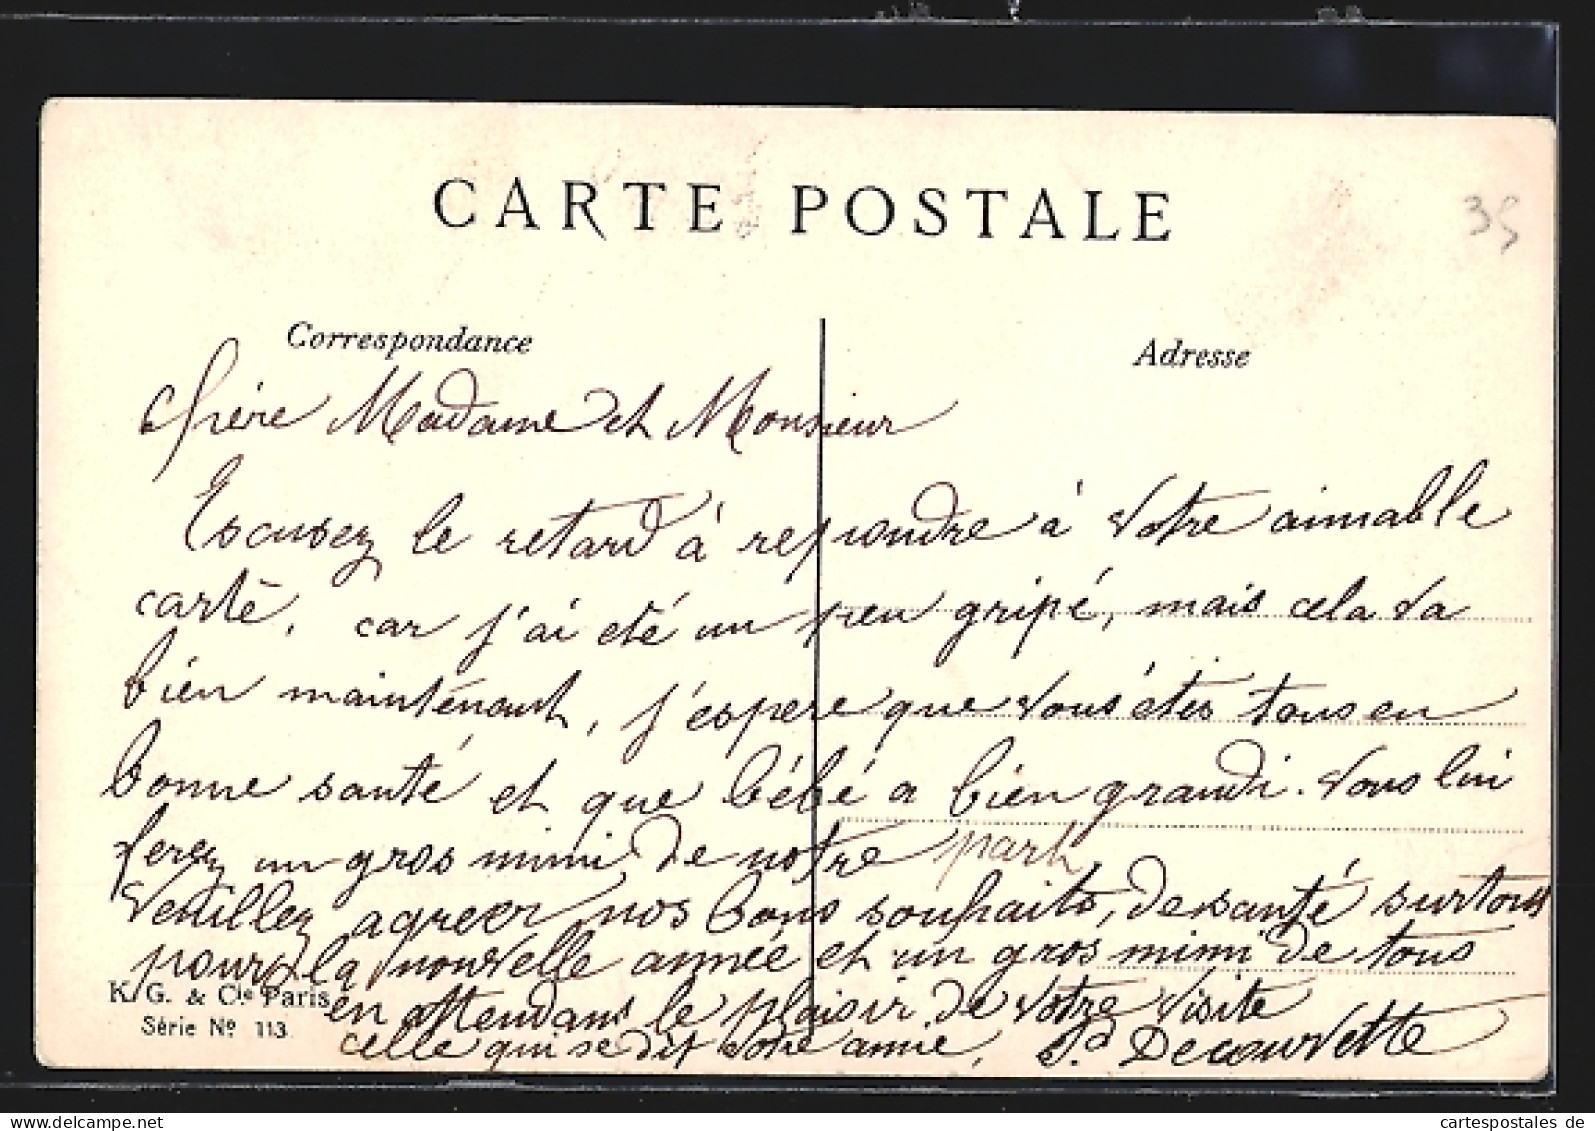 CARTE POSTALE
35
Correspondance
Adresse
Chère Madame et Monsieur
Escusez le retard à repondre à votre aimable
carte, car j'ai été un peu gripé, mais cela va
bien maintenant, j'espere que vous étes tous en
bonne santé et que bébé a bien grandi. Vous lui
ferez un gros mimi de notre part
Veuillez agreer nos bons souhaits, de santé surtout
pour la nouvelle année et un gros mimi de tous
K. G. & Cie Paris
en attendant le plaisir de votre visite
Série No 113
celle qui se dit votre amie,
Decouvette
cartespostales de